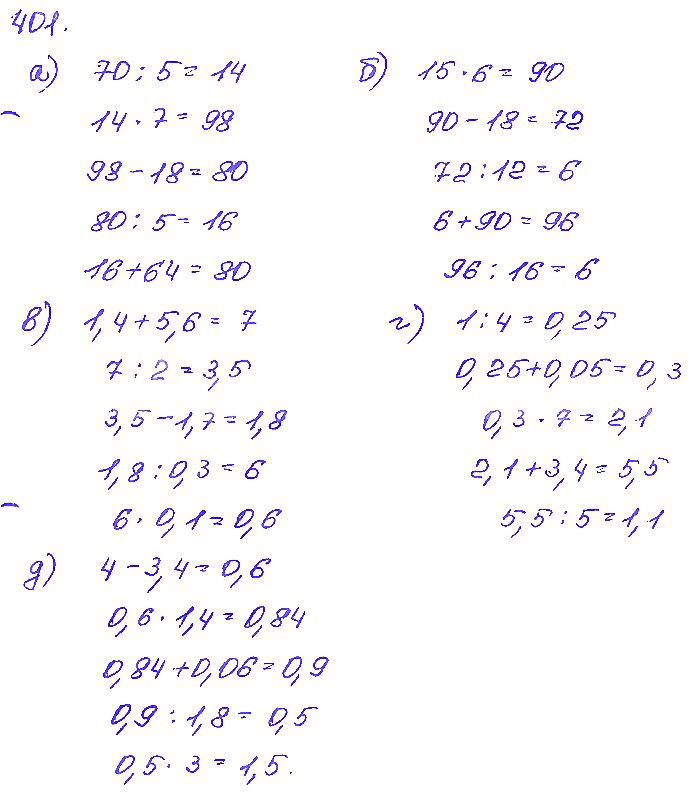 401.
а) 70 : 5 = 14
14 · 7 = 98
98 - 18 = 80
80 : 5 = 16
16 + 64 = 80
б) 15 · 6 = 90
90 - 18 = 72
72 : 12 = 6
6 + 90 = 96
96 : 16 = 6
в) 1,4 + 5,6 = 7
7 : 2 = 3,5
3,5 - 1,7 = 1,8
1,8 : 0,3 = 6
6 · 0,1 = 0,6
г) 1 : 4 = 0,25
0,25 + 0,05 = 0,3
0,3 · 7 = 2,1
2,1 + 3,4 = 5,5
5,5 : 5 = 1,1
д) 4 - 3,4 = 0,6
0,6 · 1,4 = 0,84
0,84 + 0,06 = 0,9
0,9 : 1,8 = 0,5
0,5 · 3 = 1,5.